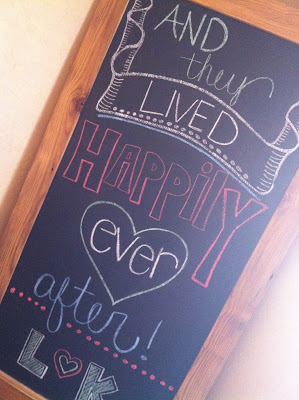 AND
they
LIVED
HAPPILY
ever
after!
L ♡ K